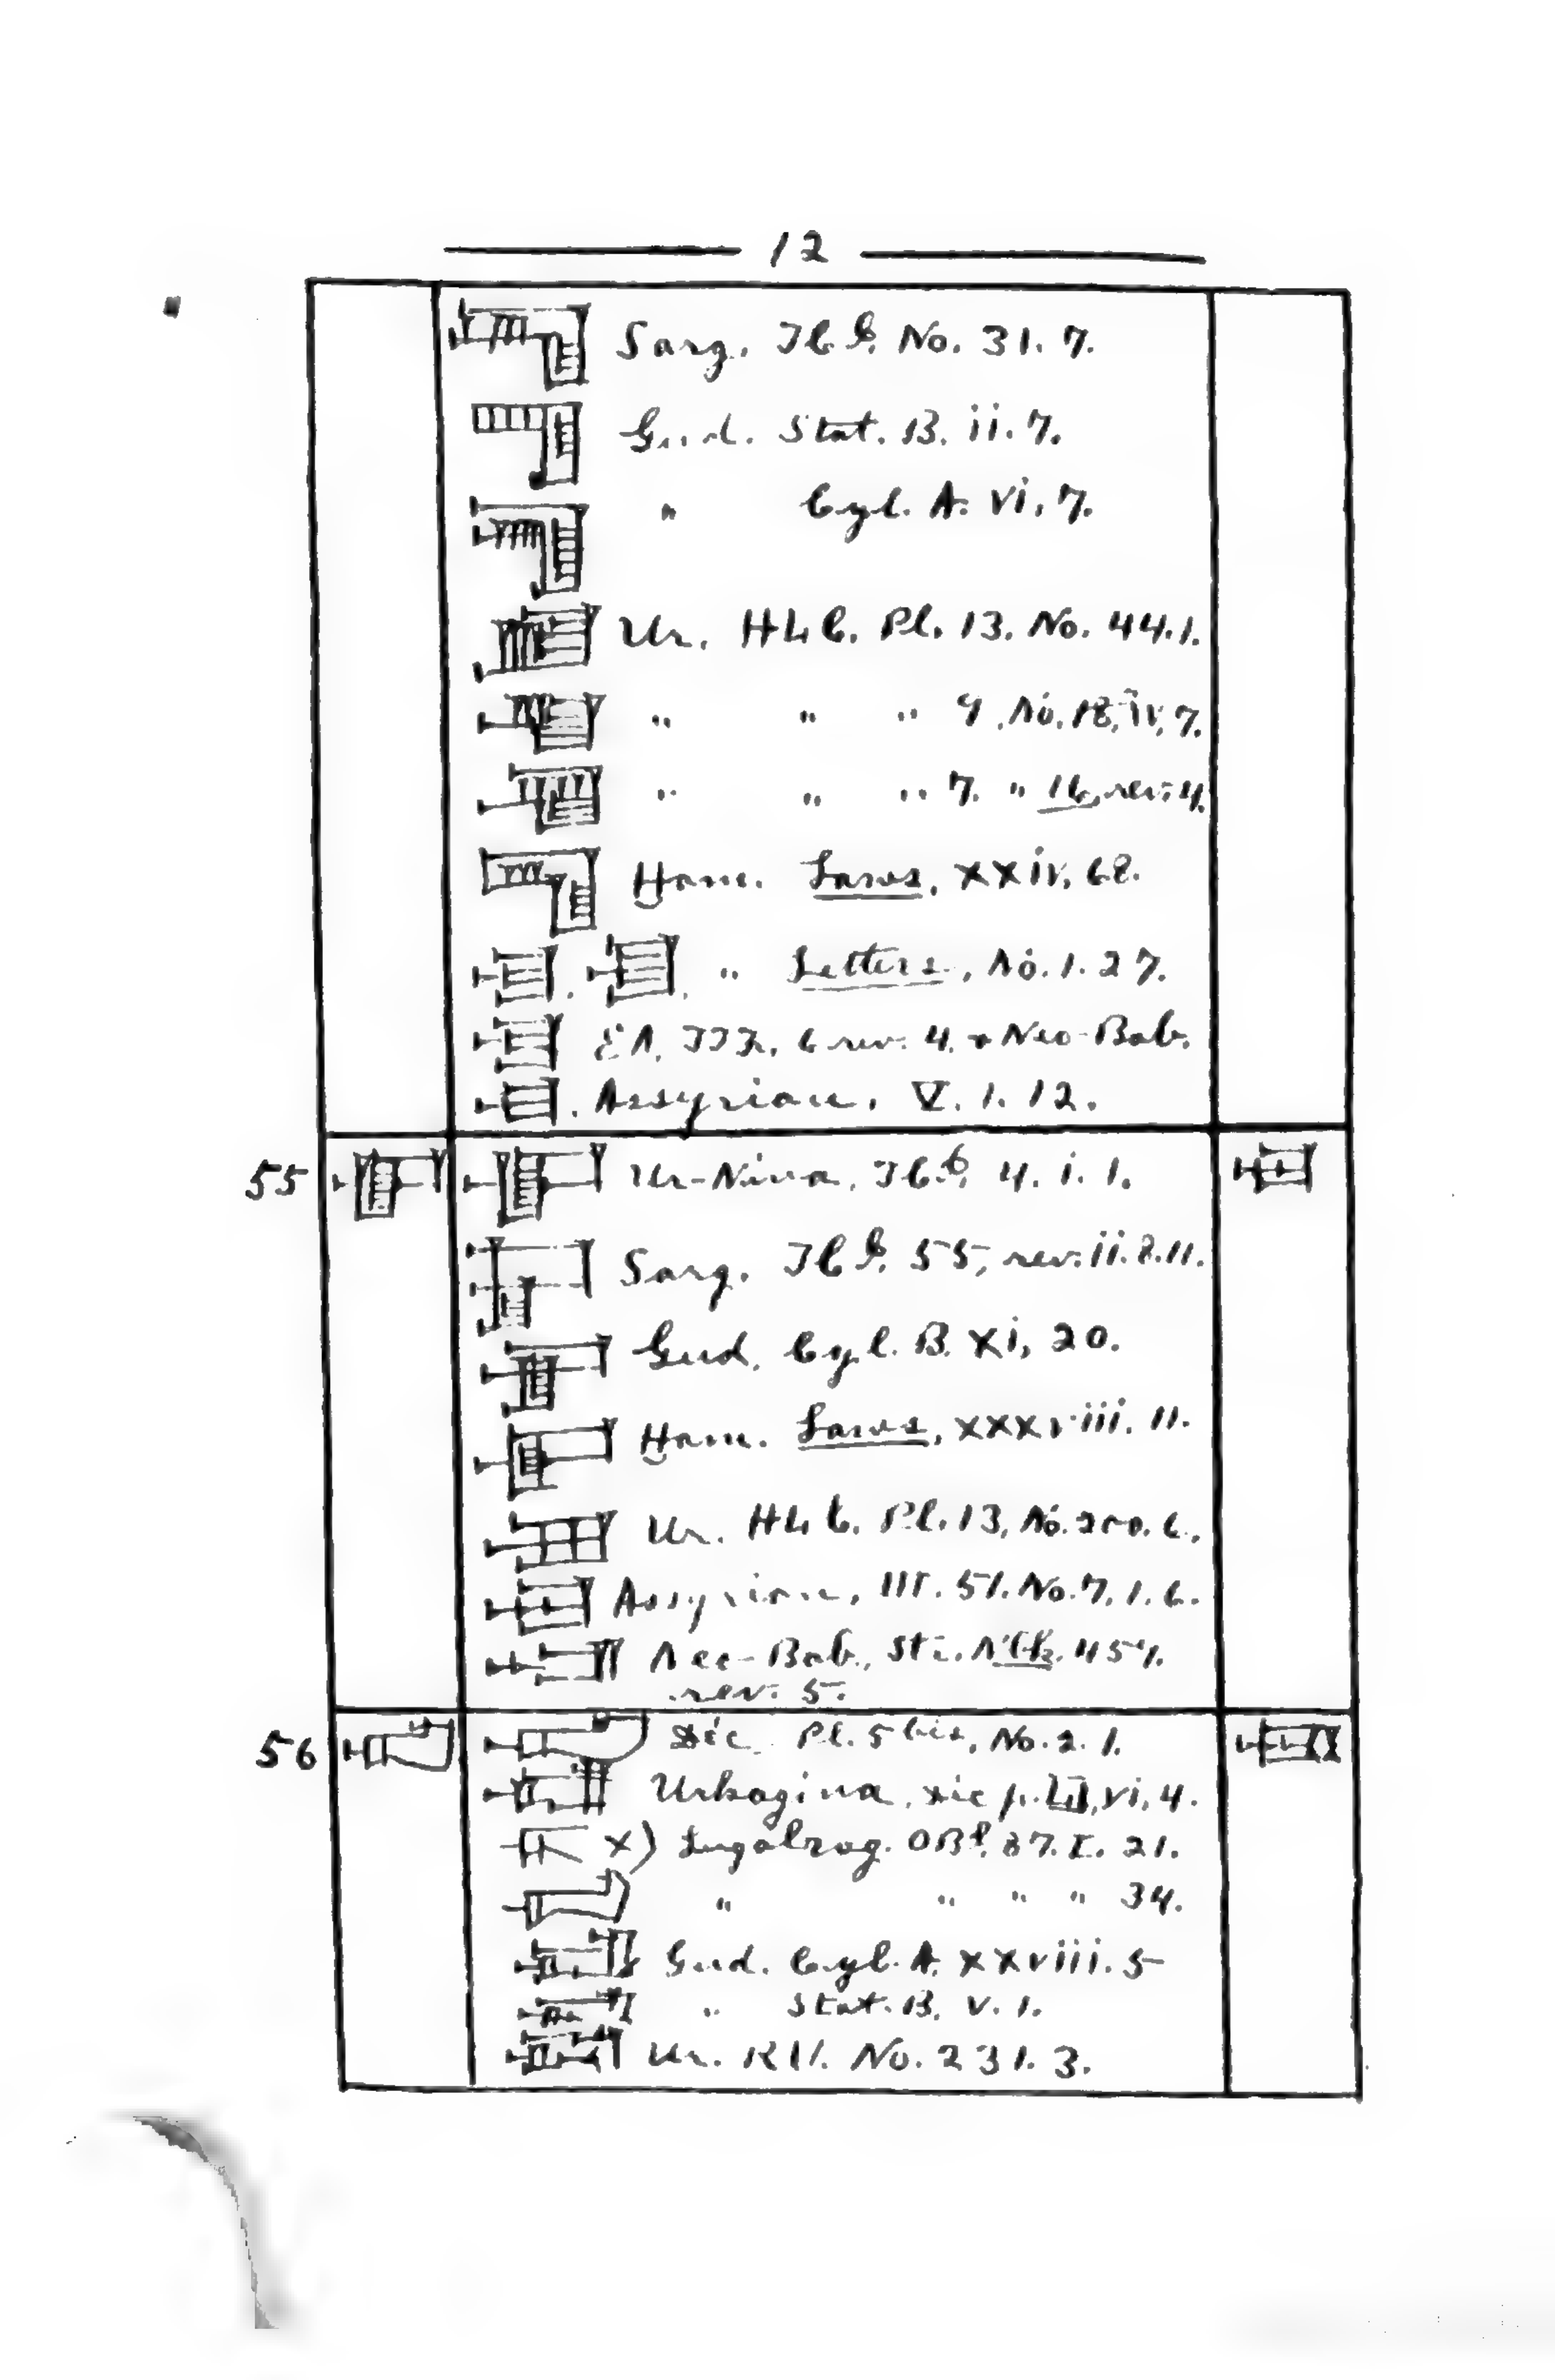 12
Sarg. No. 31. 7.
Gud. Stat. B. ii. 7.
" Cyl. A. vi, 7.
Ur. HLC. Pl. 13. No. 44.1.
" " " 9, No. 18, iv, 7.
" " " 7. " 16, rev. 4.
Ḫam. Laws, xxiv, 68.
" Letters, No. 1. 27.
EA. rev. 4. + Neo-Bab.
Assyrian, V. 1. 12.
55 Ur-Nina, 4. i. 1.
Sarg. 55, rev. ii. 8. 11.
Gud. Cyl. B. xi, 20.
Ḫam. Laws, xxxviii. 11.
Ur. HLC. Pl. 13, No. 6.
Assyrian, III. 51. No. 7, 1. 6.
Neo-Bab., Str. Nbk. 457.
rev. 5.
56 Déc. Pl. 5 bis, No. 2. 1.
Urkagina, vi, 4.
x) Lugalzag. OBI. 87. I. 21.
" " " " 34.
Gud. Cyl. A. xxviii. 5
" Stat. B, V. 1.
Ur. No. 231. 3.